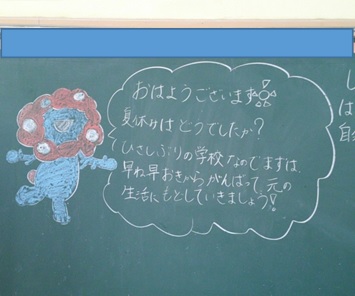 おはようございます
夏休みはどうでしたか?
ひさしぶりの学校なのでまずは、
早ね早おきからがんばって、元の
生活にもどしていきましょう!